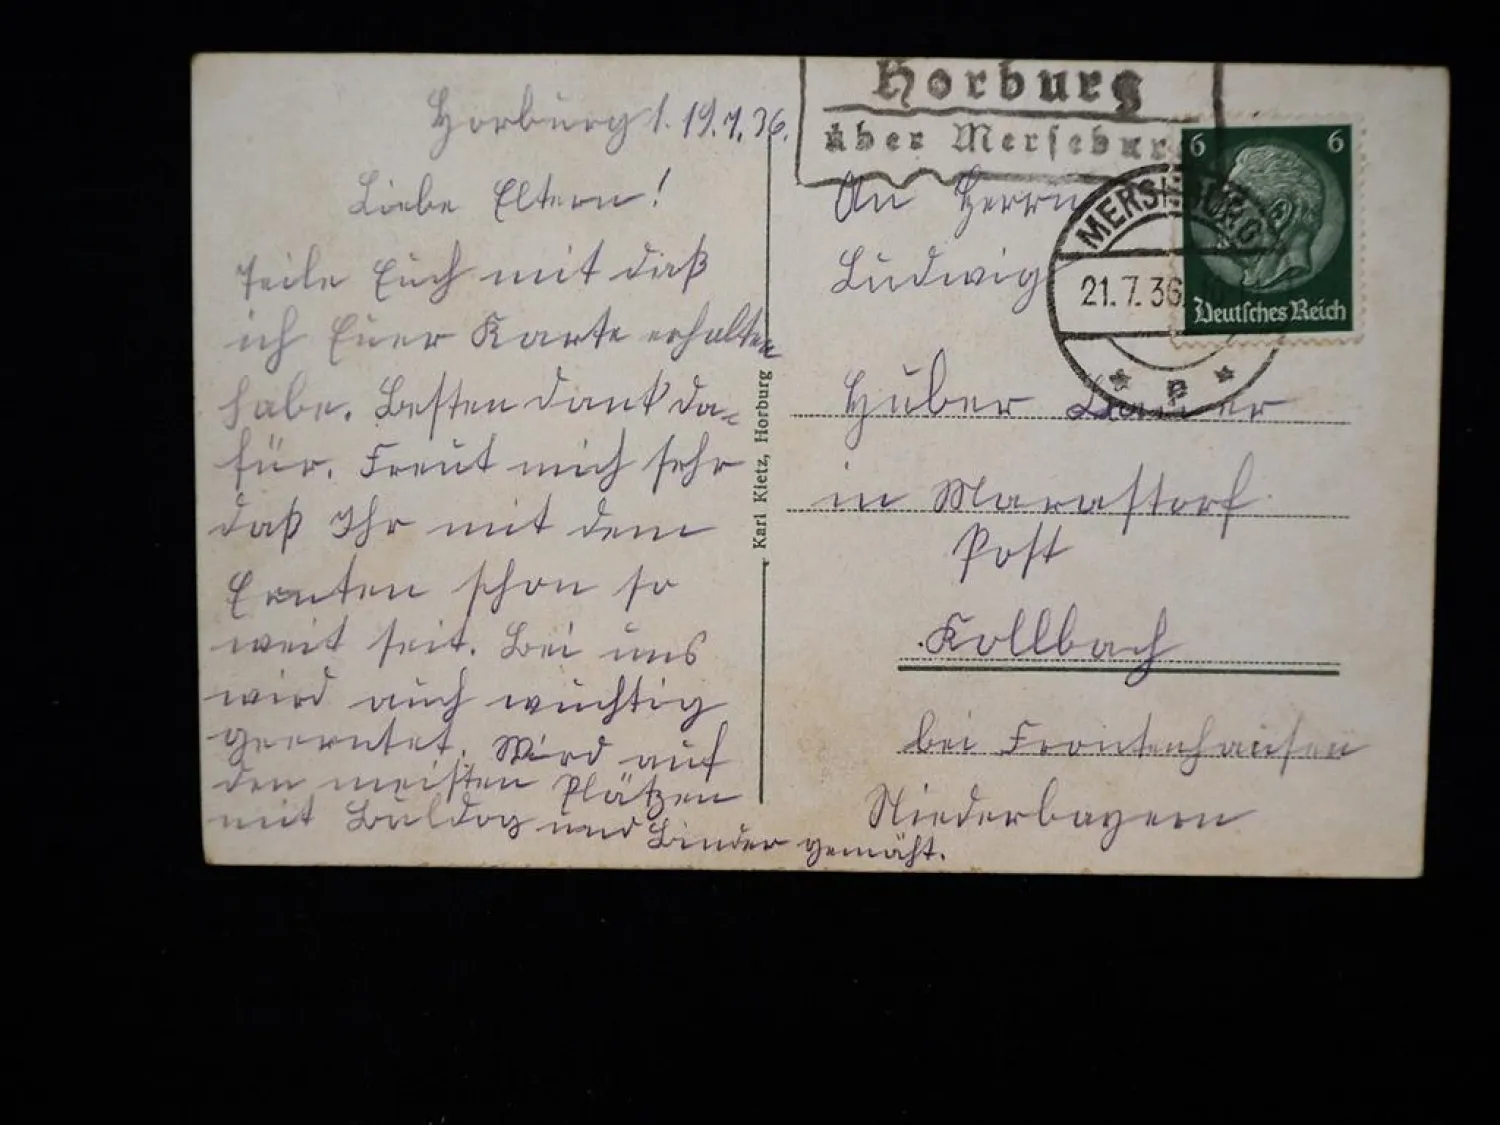 Horburg, 19.7.36.
Liebe Eltern!
Teile Euch mit daß
ich Euer Karte erhalten
habe. Besten Dank da-
für. Freut mich sehr
daß Ihr mit dem
Ernten schon so
weit seit. Bei uns
wird auch wüchtig
geerntet. Wird auf
den meisten Plätzen
mit Buldog und Binder gemäht.
Karl Kietz, Horburg
Horburg
über Merseburg
6 6
Deutsches Reich
MERSEBURG
21.7.36
An Herrn
Ludwig
Huber
in
Post
Kollbach
bei Frontenhausen
Niederbayern